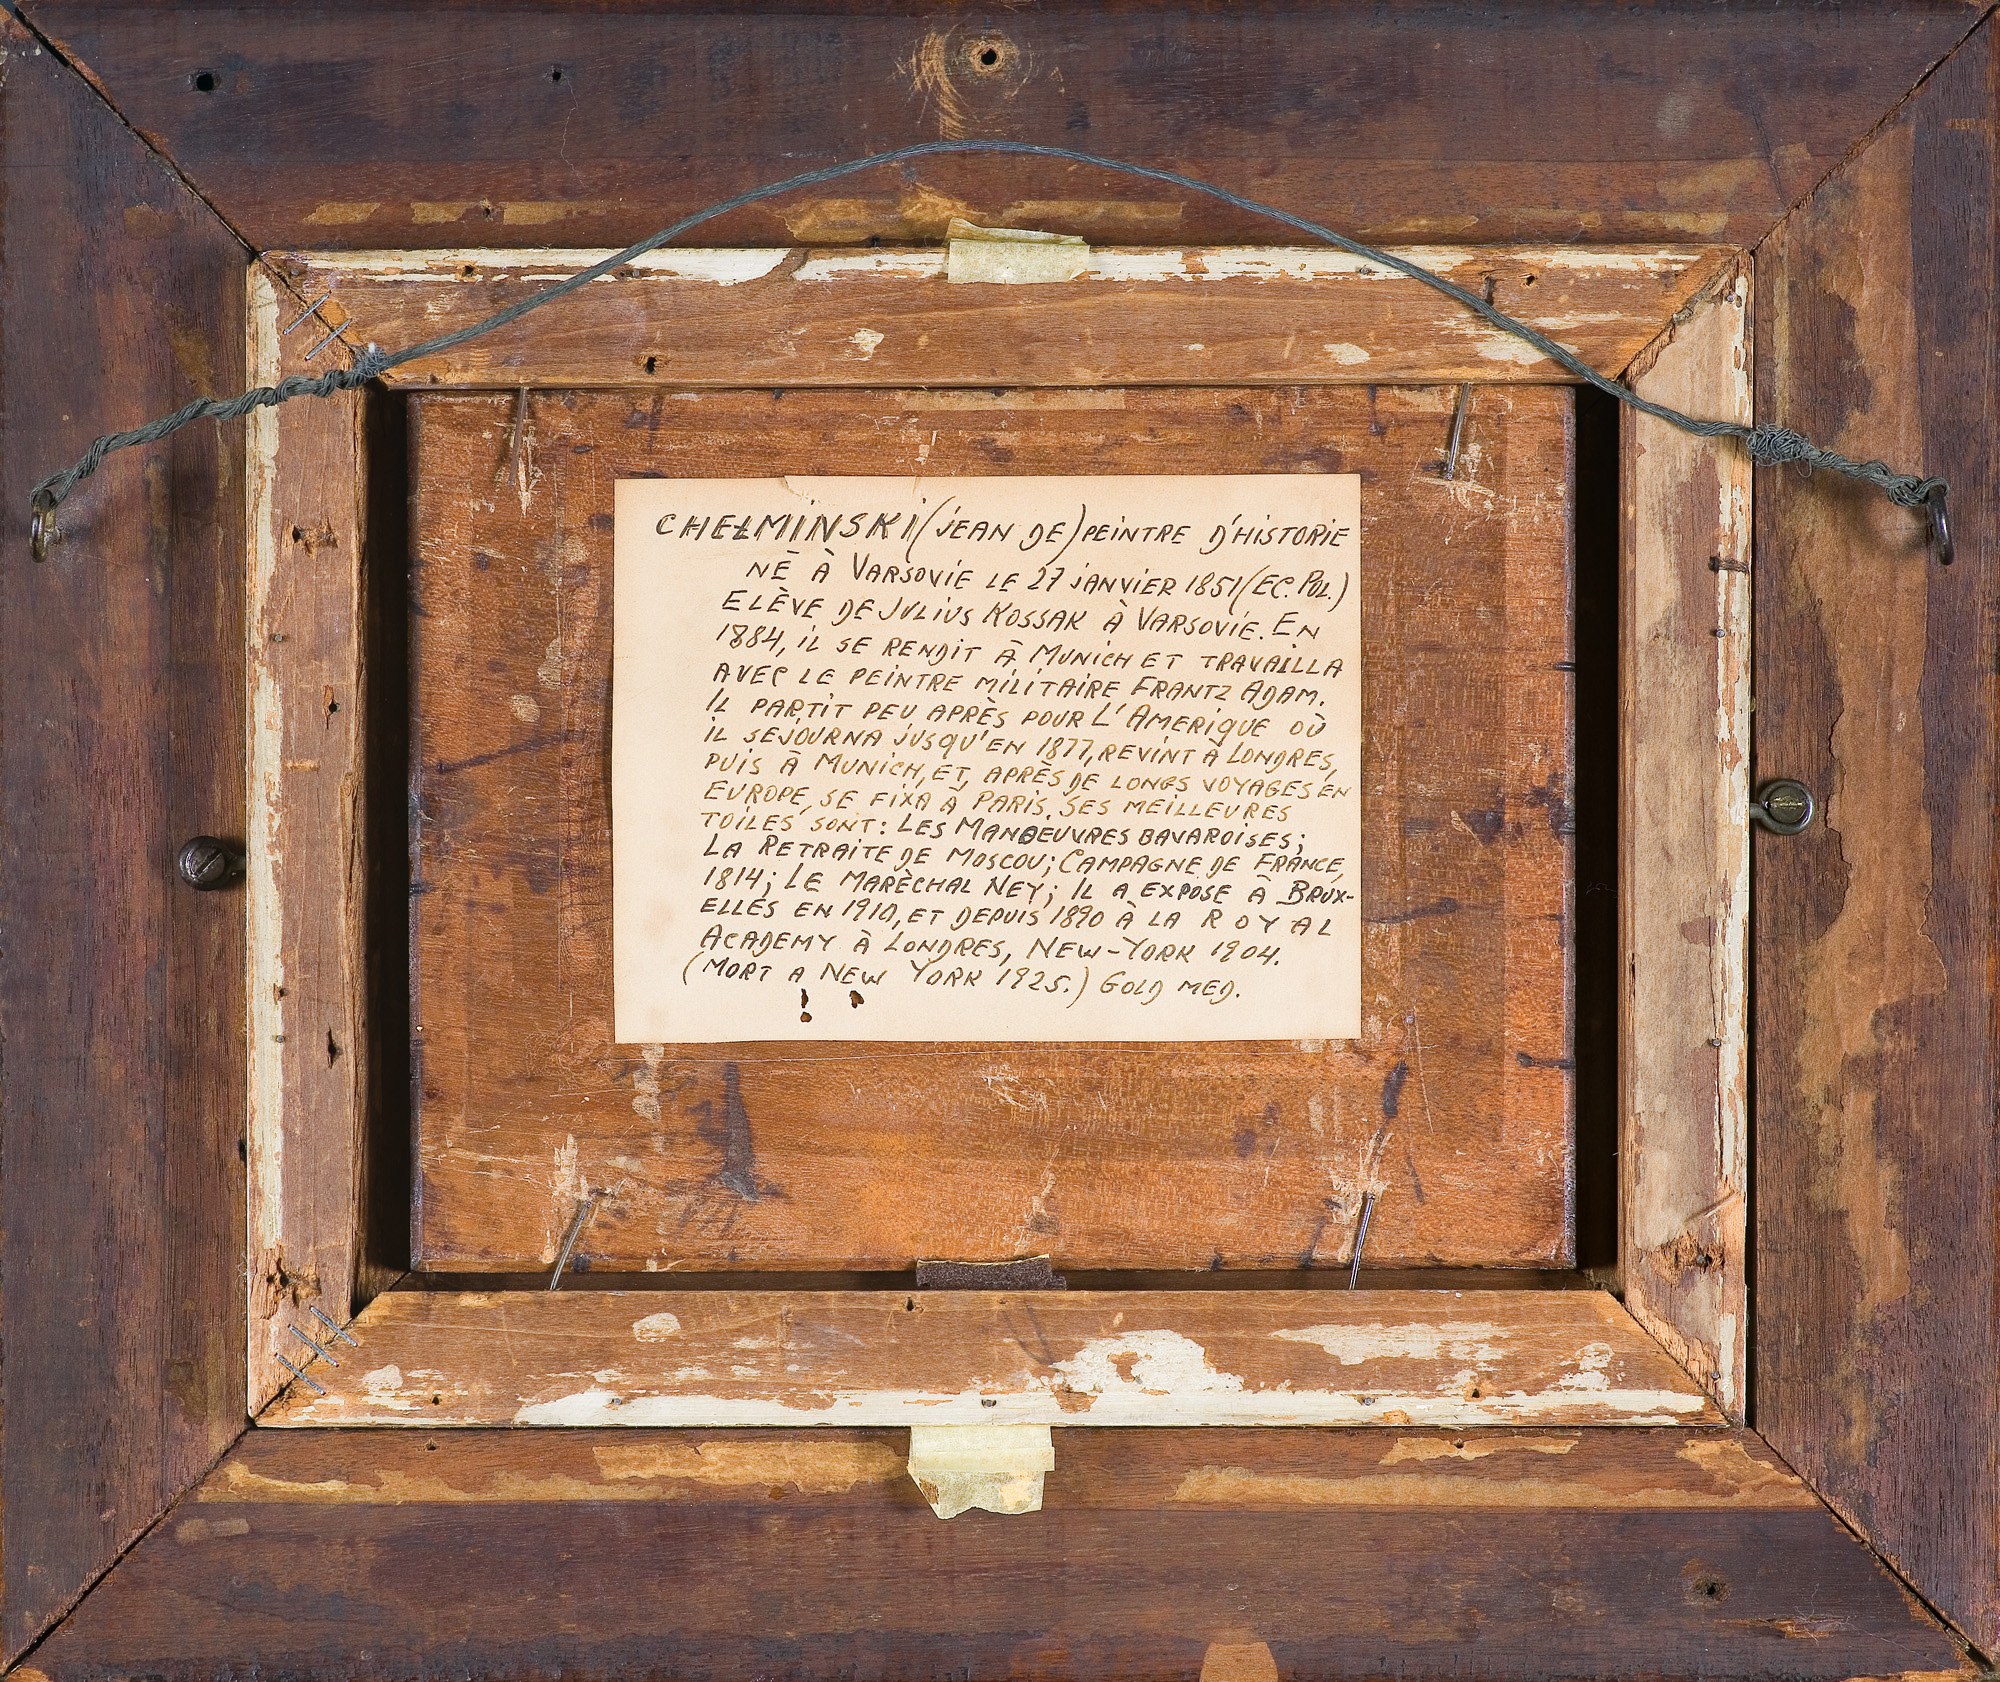 CHEŁMINSKI (JEAN DE) PEINTRE D'HISTORIE
NÉ À VARSOVIE LE 27 JANVIER 1851 (EC. POL.)
ELÈVE DE JULIUS KOSSAK À VARSOVIE. EN
1884, IL SE RENDIT À MUNICH ET TRAVAILLA
AVEC LE PEINTRE MILITAIRE FRANTZ ADAM.
IL PARTIT PEU APRÈS POUR L'AMERIQUE OÙ
IL SEJOURNA JUSQU'EN 1877, REVINT À LONDRES,
PUIS À MUNICH, ET, APRÈS DE LONGS VOYAGES EN
EUROPE, SE FIXA À PARIS. SES MEILLEURES
TOILES SONT: LES MANOEUVRES BAVAROISES;
LA RETRAITE DE MOSCOU; CAMPAGNE DE FRANCE,
1814; LE MARÈCHAL NEY; IL A EXPOSE À BRUX-
ELLES EN 1910, ET DEPUIS 1890 À LA ROYAL
ACADEMY À LONDRES, NEW-YORK 1904.
(MORT A NEW YORK 1925.) GOLD MED.